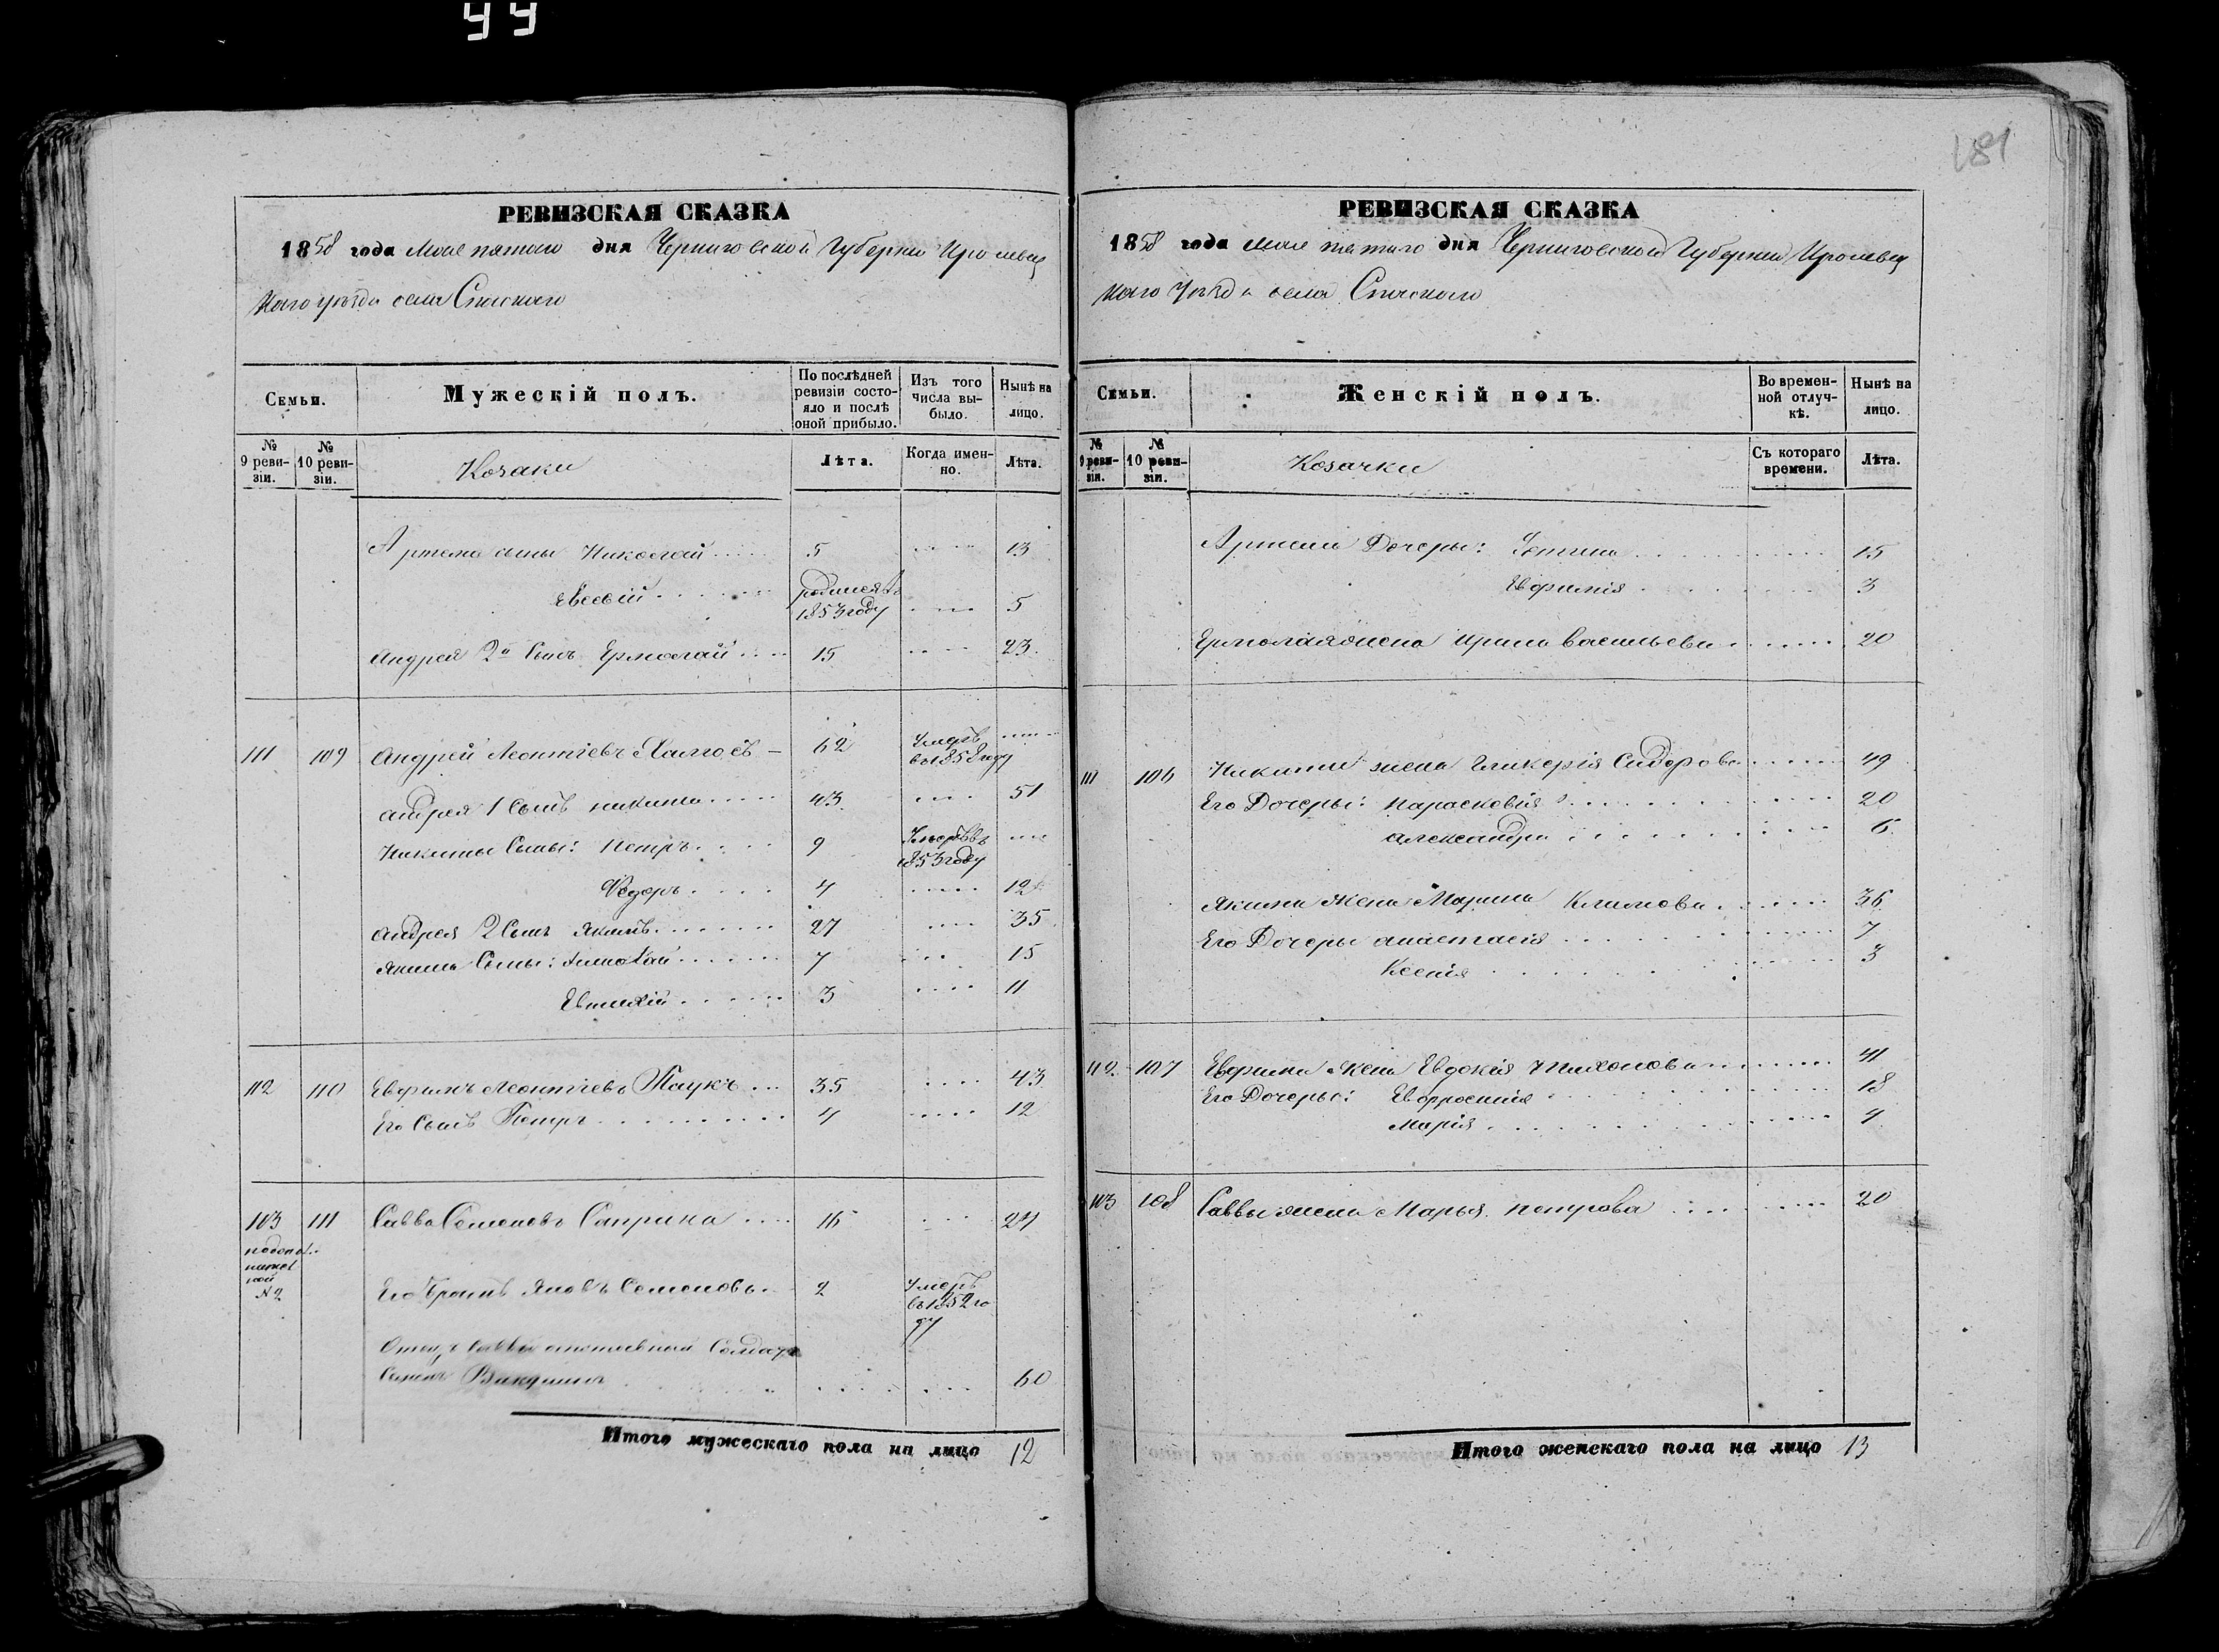 181
РЕВИЗСКАЯ СКАЗКА
1858 года Мая пятаго дня Черниговской Губернии Кролевец
каго уѣзда села Спаскаго
Семьи.
Мужескій полъ.
По послѣдней ревизіи состояло и послѣ оной прибыло.
Изъ того числа выбыло.
Нынѣ на лицо.
№ 9 ревизіи.
№ 10 ревизіи.
Козаки
Лѣта.
Когда именно.
Лѣта.
Артема сыны Николай 5 13
Евсевій родился въ 1853 году 5
Андрея 2й Сынъ Ермолай 15 23
111 109 Андрей Леонтіевъ 62 Умеръ въ 1852 году
Андрея 1 Сынъ Никита 43 51
Никиты Сыны: Петръ 9 Умеръ въ 1853 году
Федоръ 4 12
Андрея 2 Сынъ Якимъ 27 35
Якима Сыны: Тимофей 7 15
Евтихій 3 11
112 110 Евфимъ Леонтіевъ Паукъ 35 43
Его Сынъ Петръ 4 12
103 111 Савва Семеновъ Саприка 16 24
№ 2
Его Братъ Яковъ Семеновъ 2 Умеръ въ 1852 году
Отецъ Саввы отставный Солдатъ
Семенъ 60
Итого мужескаго пола на лицо 12
РЕВИЗСКАЯ СКАЗКА
1858 года мая пятаго дня Черниговской Губернии Кролевец
каго Уѣзда села Спаскаго
Семьи.
Женскій полъ.
Во временной отлучкѣ.
Нынѣ на лицо.
№ 9 ревизіи.
№ 10 ревизіи.
Козачки
Съ котораго времени.
Лѣта.
Артема Дочеры: 15
Евфимія 3
Ермолая жена Ирина Васильева 20
111 106 Никиты жена Гликерія Сидорова 49
Его Дочеры: Парасковія 20
Александра 6
Якима жена Марина Климова 36
Его Дочеры Анастасія 7
Ксенія 3
112 107 Евфима жена Евдокія Тихонова 41
Его Дочеры: Евфросинія 18
Марія 4
103 108 Саввы жена Марья Петрова 20
Итого женскаго пола на лицо 13